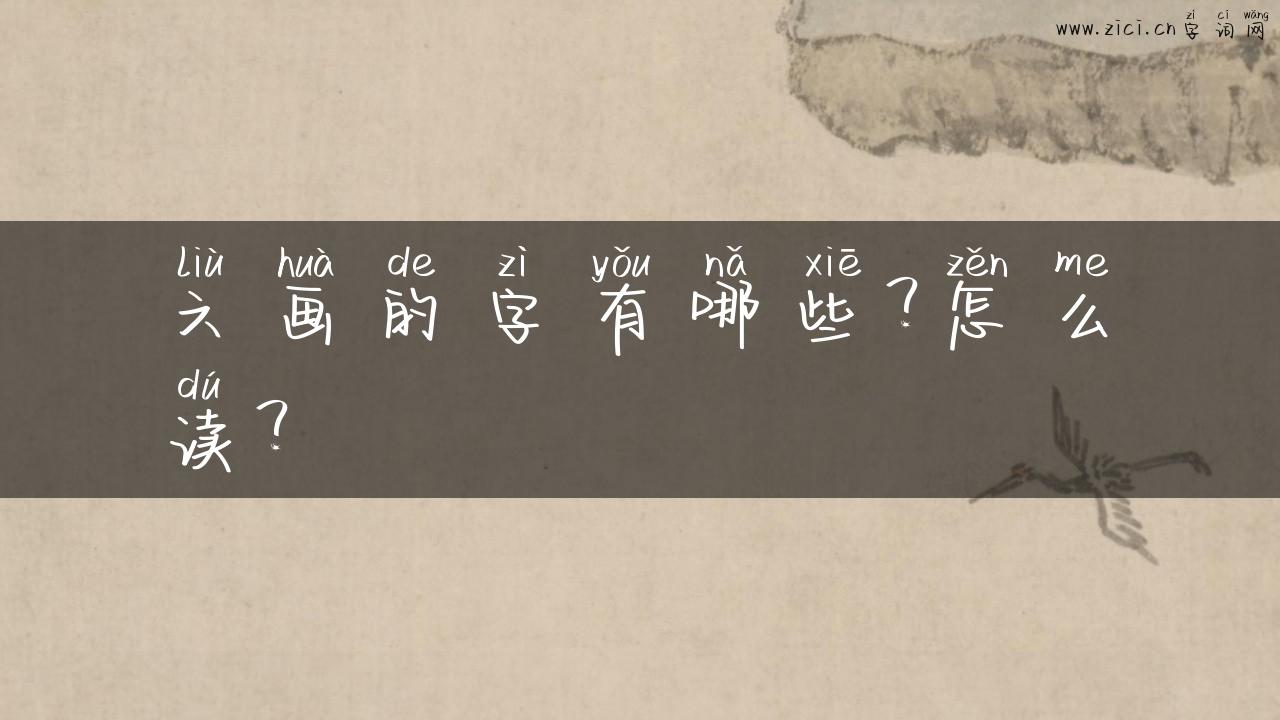 zì cí wǎng
www.zici.cn 字 词 网
liù huà de zì yǒu nǎ xiē zěn me
六 画 的 字 有 哪 些 ? 怎 么
dú
读 ?